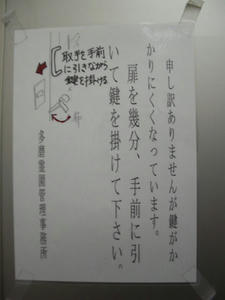 申し訳ありませんが鍵がか
かりにくくなっています。
扉を幾分、手前に引
いて鍵を掛けて下さい。
取手を手前
に引きながら
鍵を掛ける
多磨霊園管理事務所